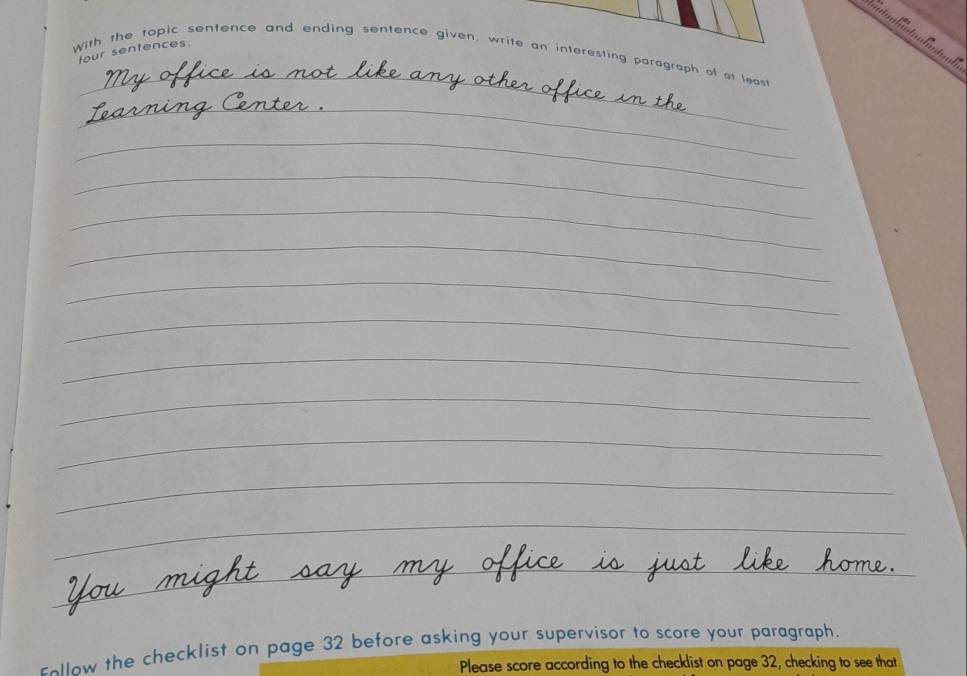 With the topic sentence and ending sentence given, write an interesting paragraph of at least
four sentences.
My office is not like any other office in the
Learning Center.
You might say my office is just like home.
Follow the checklist on page 32 before asking your supervisor to score your paragraph.
Please score according to the checklist on page 32, checking to see that